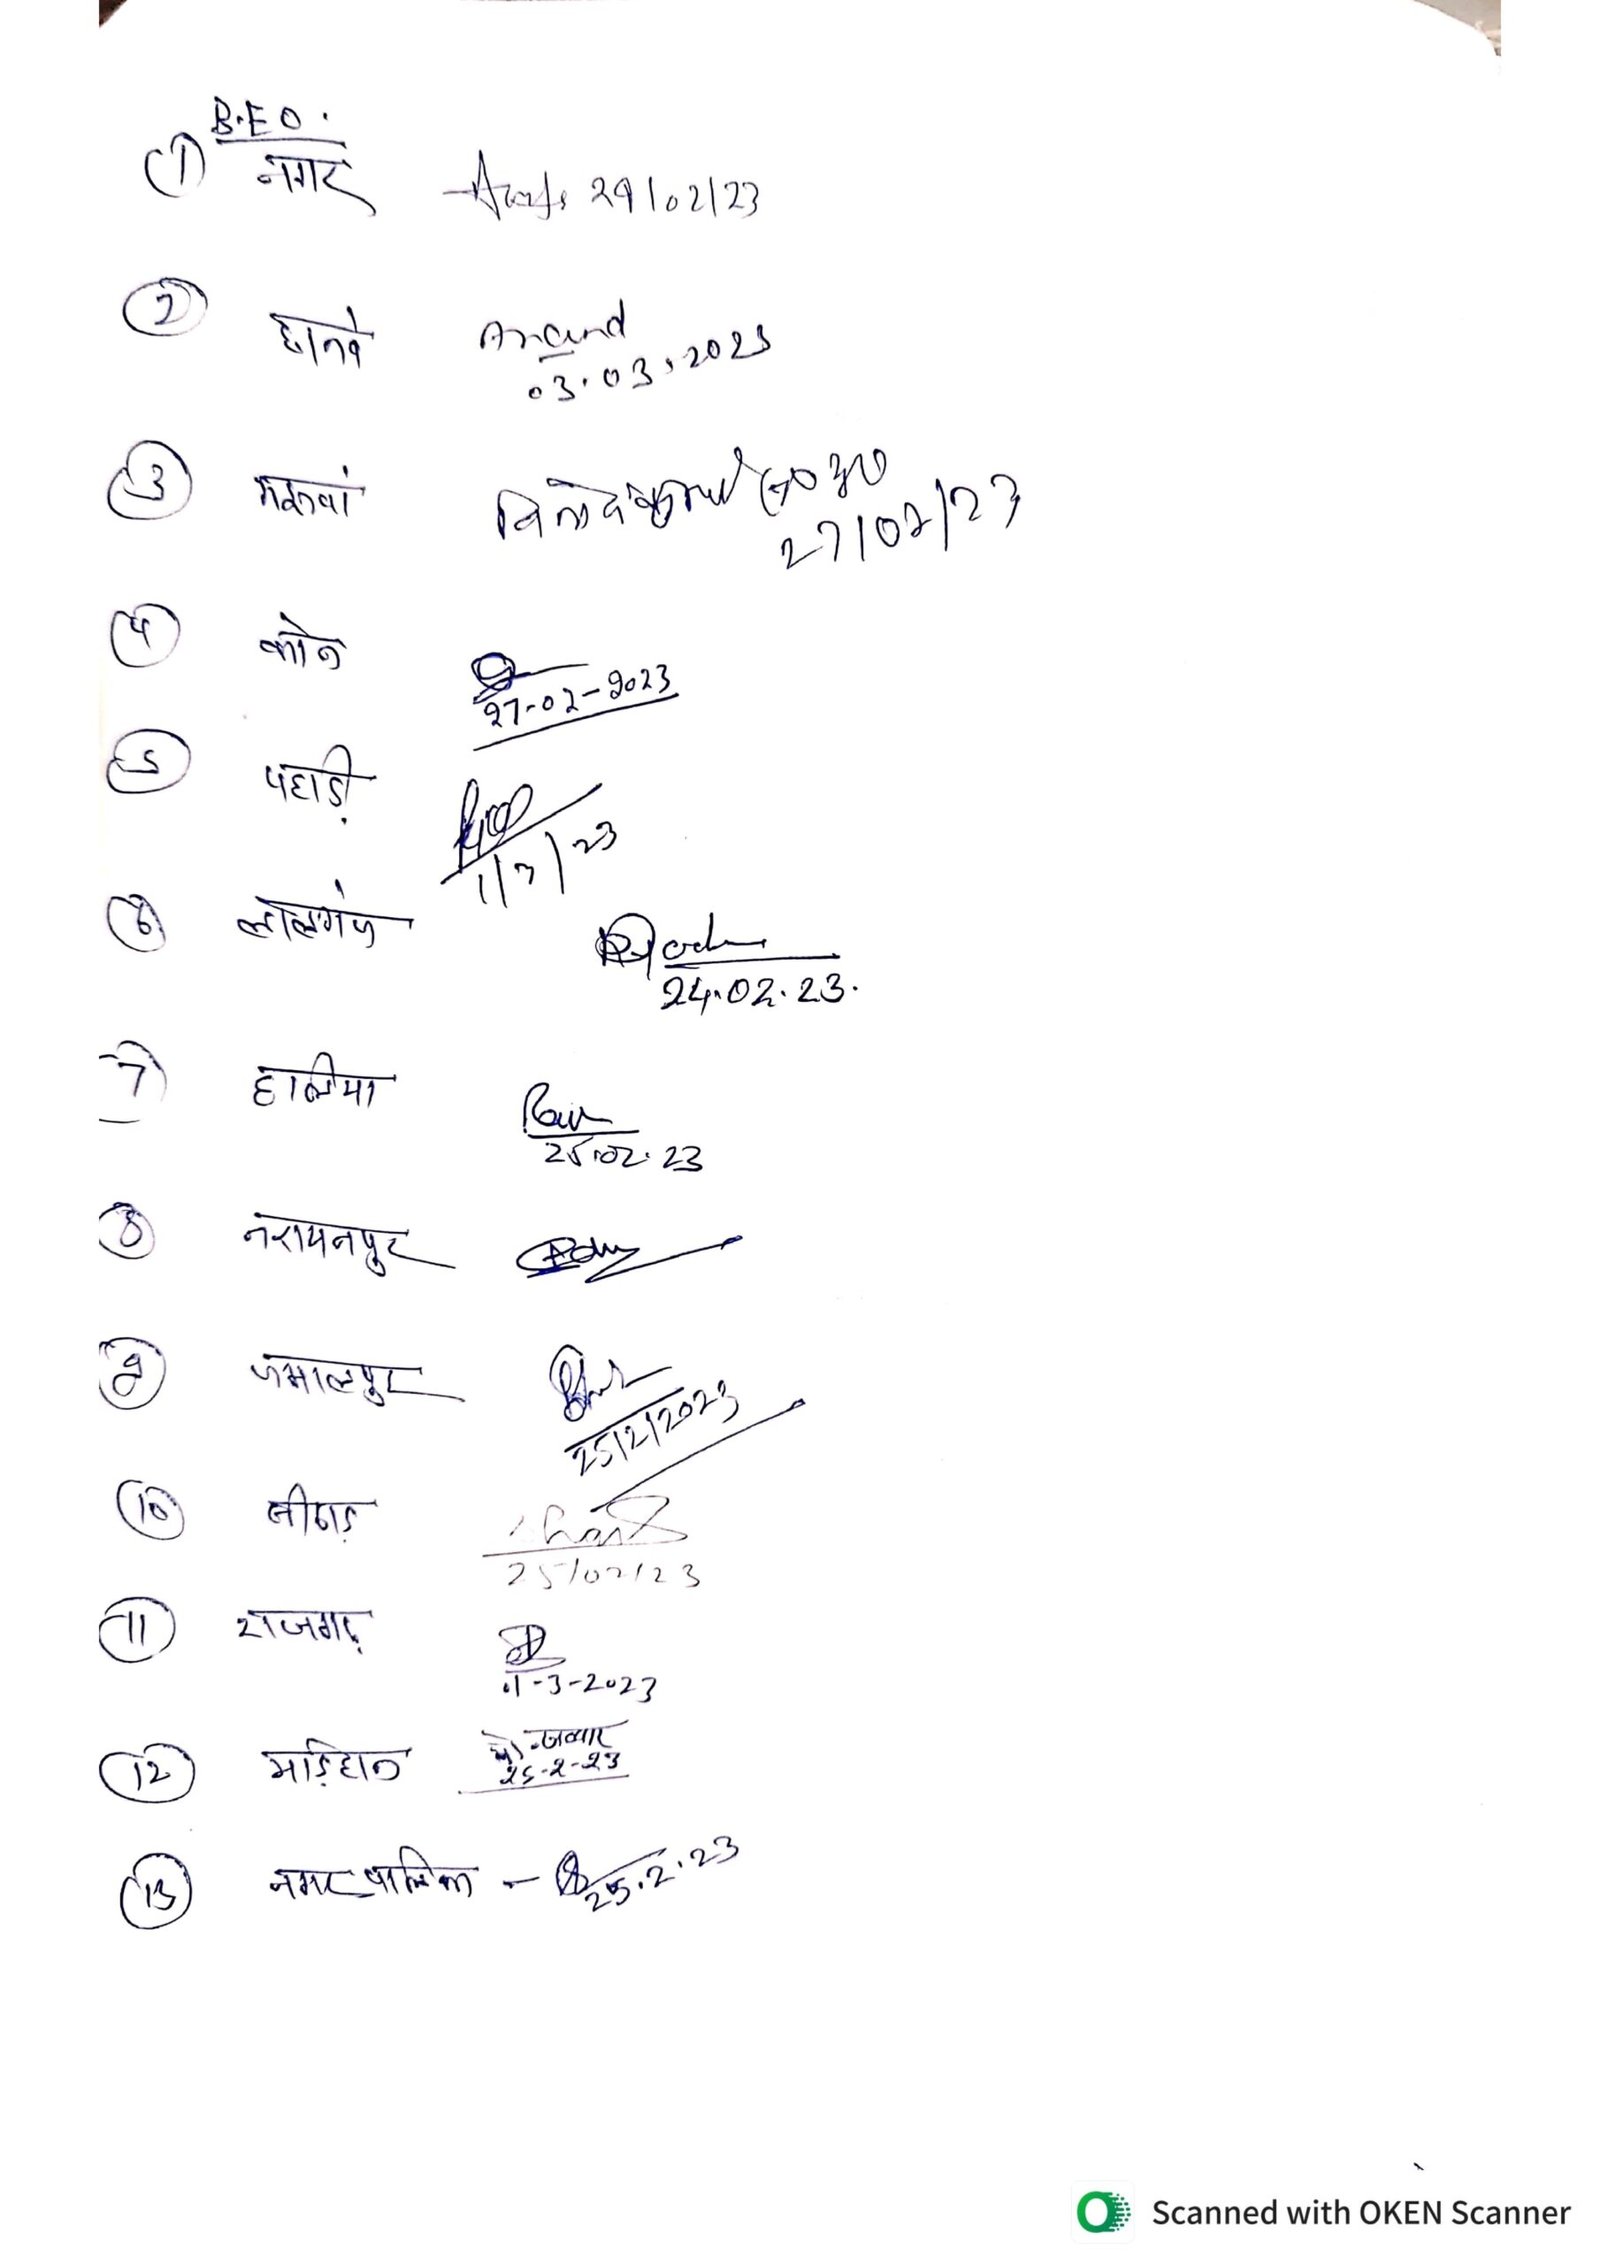 B.E.O.
① नगर 24/02/23
② छानवे Anand
03.03.2023
③ मझवां विनोद कुमार
27/02/23
④ कोन
27-02-2023
⑤ पहाड़ी
1/3/23
⑥ लालगंज
24.02.23.
⑦ हालिया
25.02.23
⑧ नरायनपुर
⑨ जमालपुर
25/2/2023
⑩ सीखड़
25/02/23
⑪ राजगढ़
01-3-2023
⑫ मड़िहान
25-2-23
⑬ नगर पालिका - 25.2.23
Scanned with OKEN Scanner